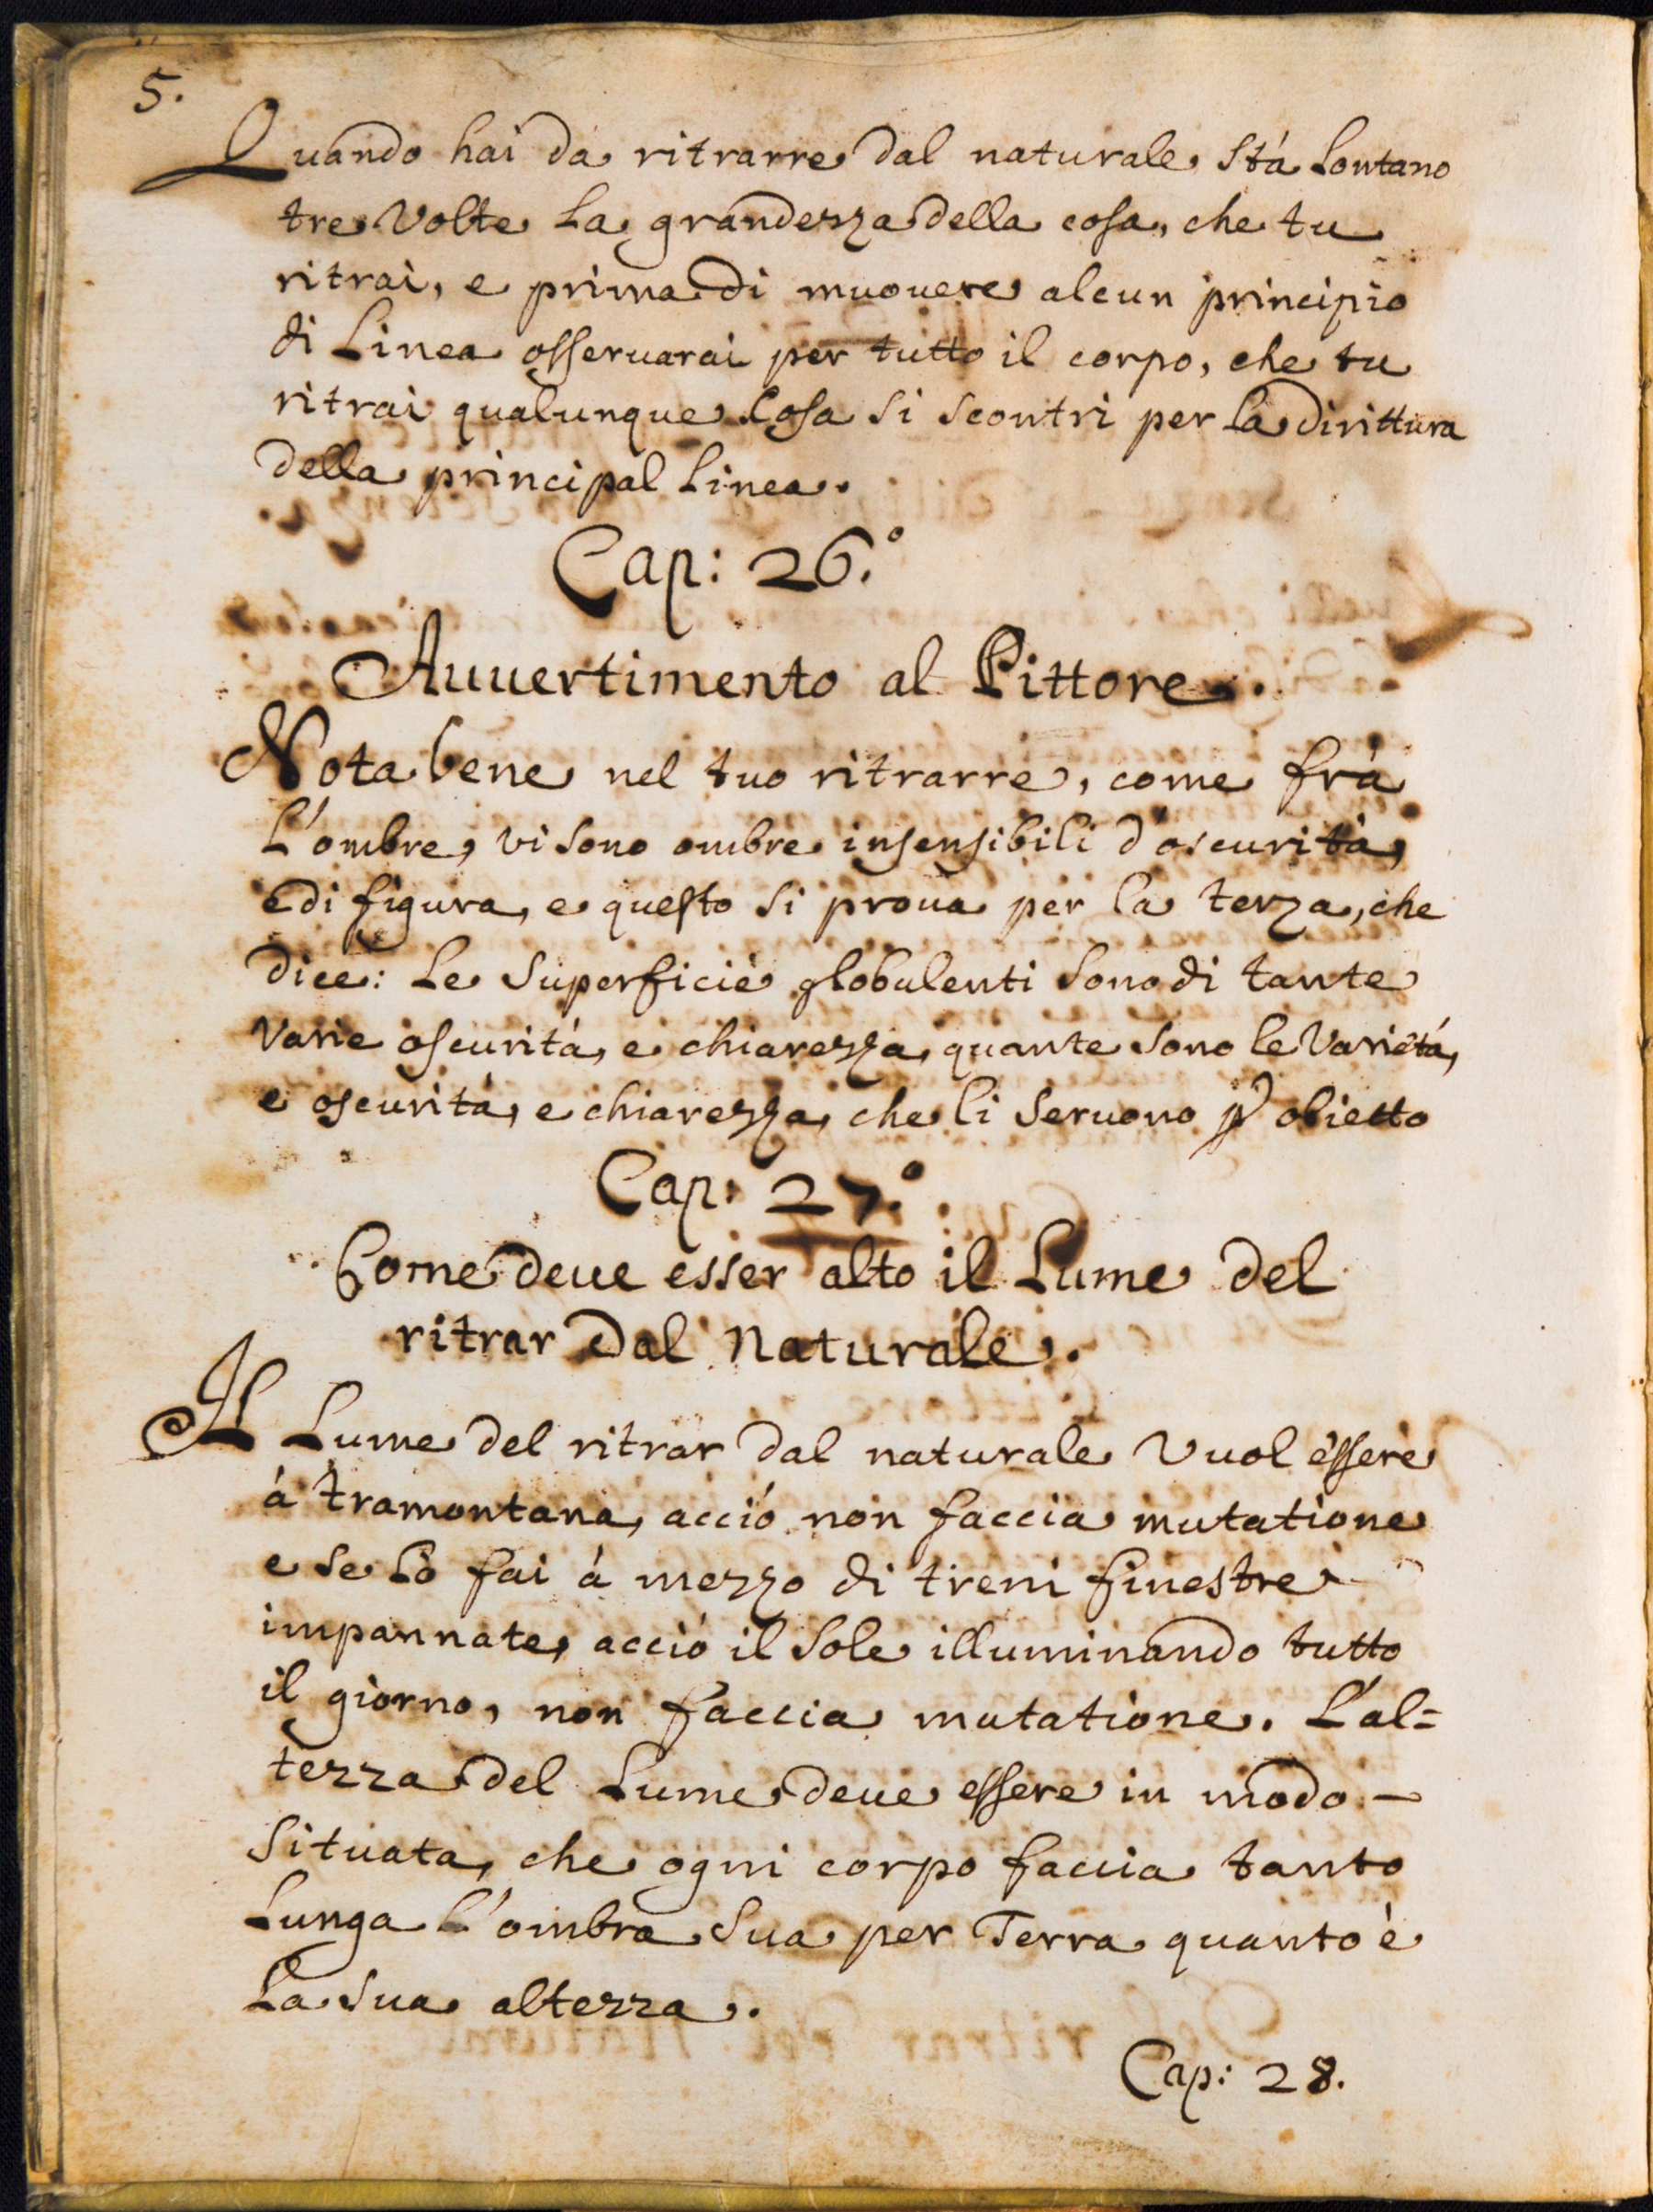 5.
Quando hai da ritrarre dal naturale stà lontano
tre Volte la grandezza della cosa, che tu
ritrai, e prima di muouere alcun principio
di Linea osseruarai per tutto il corpo, che tu
ritrai qualunque cosa si scontri per la dirittura
della principal linea.
Cap: 26.°
Auuertimento al Pittore.
Nota bene nel tuo ritrarre, come frà
L'ombre, vi sono ombre insensibili d'oscurità,
e di figura, e questo si proua per la terza, che
dice: Le Superficie globulenti sono di tante
Varie oscurità, e chiarezza, quante sono le Varietà,
e oscurità, e chiarezza, che li seruono p obietto
Cap: 27.°
Come deue esser alto il Lume del
ritrar dal Naturale.
Il Lume del ritrar dal naturale Vuol essere
à tramontana, acciò non faccia mutatione
e se lo fai à mezzo dì tieni finestre
impannate, acciò il Sole illuminando tutto
il giorno, non faccia mutatione. L'al=
tezza del Lume deue essere in modo –
Situata, che ogni corpo faccia tanto
Lunga l'ombra Sua per Terra quanto è
La Sua altezza.
Cap: 28.